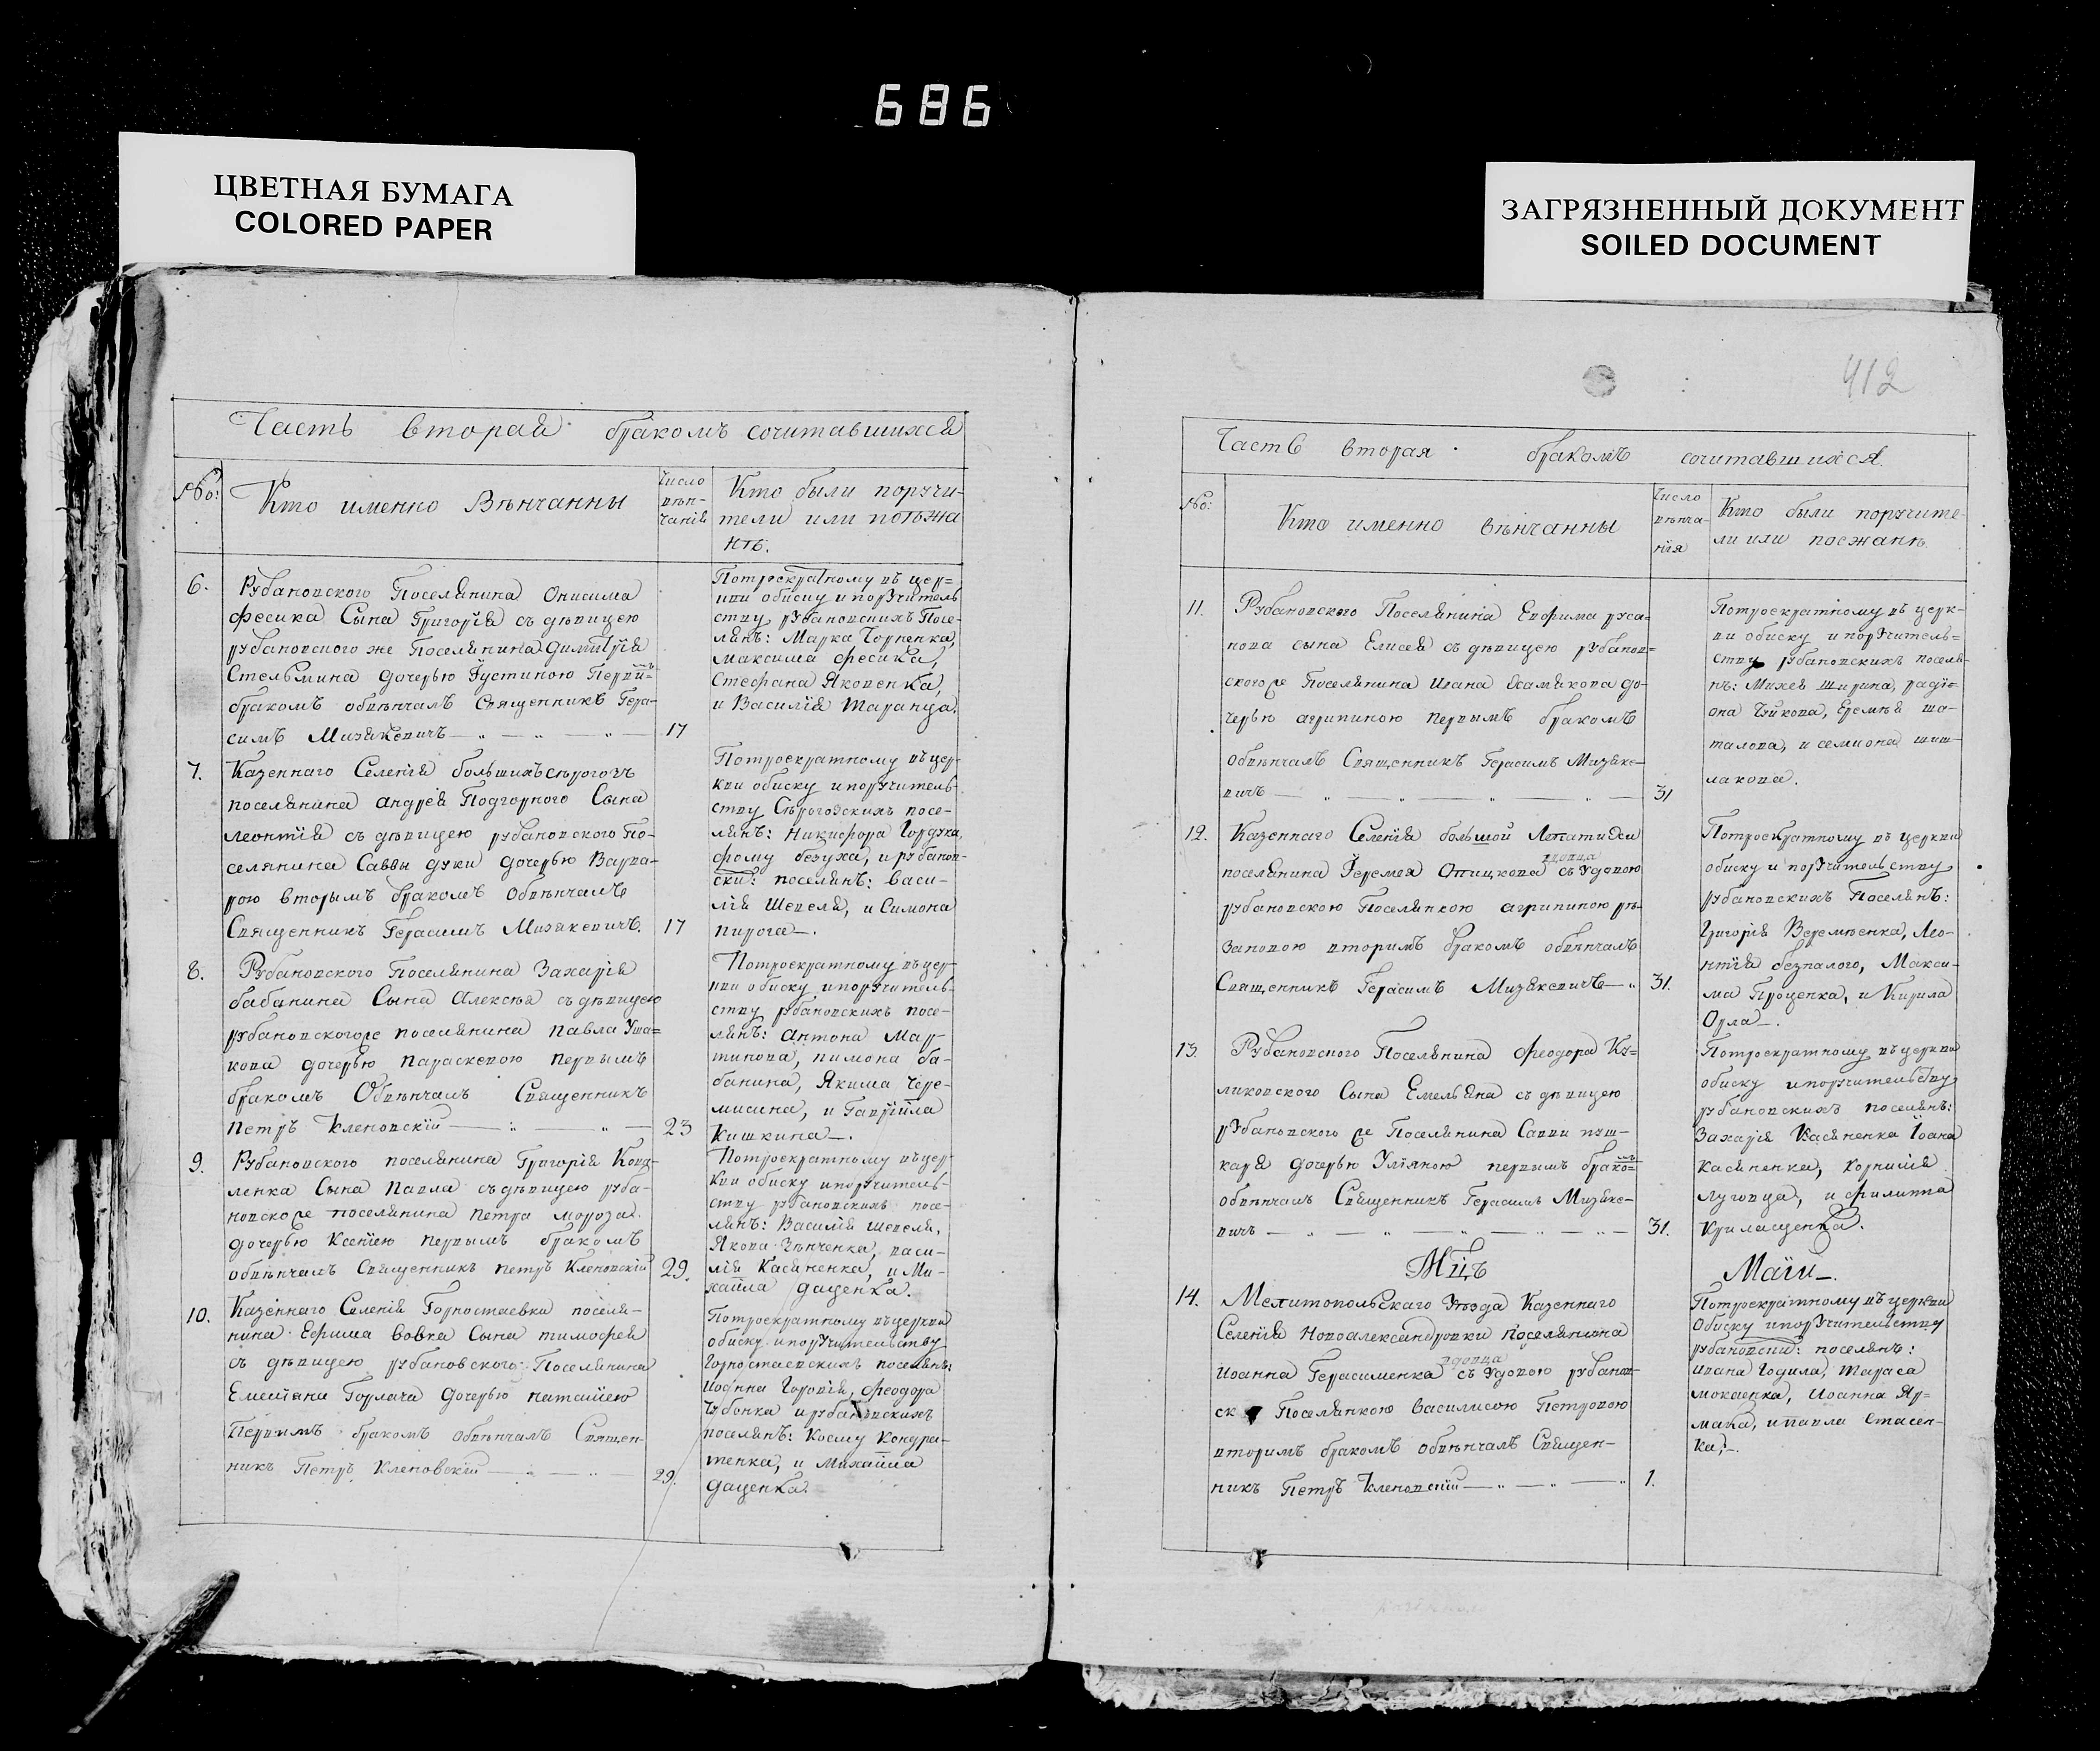 686
ЦВЕТНАЯ БУМАГА
COLORED PAPER
ЗАГРЯЗНЕННЫЙ ДОКУМЕНТ
SOILED DOCUMENT
412
Часть вторая бракомъ сочитавшихся
№:
Кто именно Вѣнчанны
Число
вѣн-
чанія
Кто были поручи-
тели или поѣзжа
нѣ.
6.
Рубановского Поселянина Онисима
Фесика Сына Григорія съ дѣвицею
рубановского же Поселянина Димитрія
Стельмина дочерью Іустиною Первы=мъ
бракомъ обвѣнчалъ Священникъ Гера-
симъ Мизякевичъ — „ — „ — „ —
17
Потроекратному въ цер=
кви обиску и поручитель
ству рубановскихъ Посе-
лянъ: Марка Чорненка,
Максима Фесика,
Стефана Яковенка,
и Василія Таранца.
7.
Казеннаго Селенія большихъ сѣрогозъ
поселянина Андрея Подгорного Сына
Леонтія съ дѣвицею рубановского По-
селянина Саввы Дуки дочерью Варва-
рою вторымъ бракомъ Обвѣнчалъ
Священникъ Герасимъ Мизякевичъ.
17
Потроекратному въ цер-
кви обиску и поручитель-
ству Сѣрогозскихъ посе-
лянъ: Никифора Гордука,
Фому безуха, и рубанов-
ски: поселянъ: Васи-
лія Шевеля, и Симона
Пирога —.
8.
Рубановского Поселянина Захарія
бабанина Сына Алексѣя съ дѣвицею
рубановского же поселянина Павла Уша=
кова дочерью Параскевою первымъ
бракомъ Обвѣнчалъ Священникъ
Петръ Кленовскій — „ — „ —
23
Потроекратному въ цер-
кви обиску и поручитель-
ству рбановскихъ посе-
лянъ: Антона Мар-
тинова, Пимона ба-
банина, Якима Чере-
мисина, и Гавріила
Кишкина —.
9.
Рубановского поселянина Григорія Ковa-
ленка Сына Павла съ дѣвицею руба-
новско же поселянина Петра Мороза
дочерью Ксенією первымъ бракомъ
обвѣнчалъ Священникъ Петръ Кленовскій
29.
Потроекратному въ цер-
кви обиску и поручитель-
ству рубановскихъ посе-
лянъ: Василія Шевеля,
Якова Зѣнченка, васи-
лія Касяненка, и Ми-
хаила Даценка.
10.
Казеннаго Селенія Горностаевки поселя-
нина Ефима Вовка Сына Тимофея
съ дѣвицею рубановского Поселянина
Емеліана Горлача дочерью Наталією
Первимъ бракомъ обвѣнчалъ Священ-
никъ Петръ Кленовскій — „ — „
29.
Потроекратному въ церкви
обиску и поручительству
Горностаевскихъ поселянъ:
Иоанна Горовія, Феодора
Чубенка и рубановскихъ
поселянъ: Косму Кондра-
тенка, и Михаила
Даценка.
Часть вторая бракомъ сочитавшихся.
№:
Кто именно вѣнчанны
Число
вѣнча-
нія
Кто были поручите-
ли или поезжанѣ.
11.
Рубановского Поселянина Евфима руса-
нова сына Елисея съ дѣвицею рубанов=
ского же Поселянина Ивана Хамякова до-
черью агрипиною первымъ бракомъ
обвѣнчалъ Священникъ Герасимъ Мизяке-
вичъ — „ — „ — „ — „ —
31
Потроекратному въ церк-
ви обиску и поручитель=
ству рубановскихъ поселя-
нъ: Михея Ширина, радіо-
она Чуйкова, Еремѣя ша-
талова, и семиона шиш-
лакова.
12.
Казеннаго Селенія большой Лепатихи
поселянина Іеремея Опицкова вдовца съ удовою
рубановскою Поселянкою агрипиною ря-
зановою вторимъ бракомъ обвѣнчалъ
Священникъ Герасимъ Мизякевичъ — „
31.
Потроекратному въ церкви
обиску и поручительству
рубановскихъ Поселянъ:
Григорія Веремѣенка, Лео-
нтія безпалого, Макси-
ма Проценка, и Кирила
Орла —.
13.
Рубановского Поселянина Феодора Ку=
ликовского Сына Емельяна съ дѣвицею
рубановского же Поселянина Савви пуш-
каря дочерью Уліяною первымъ брако=мъ
обвѣнчалъ Священникъ Герасимъ Мизяке-
вичъ — „ — „ — „ — „ —
31.
Потроекратному въ церкви
обиску и поручительству
рубановскихъ поселянъ:
Захарія Касяненка Іоана
Касяненка, Корнилія
Луговца, и Филиппа
Криласценка.
Мцъ
Маій —.
14.
Мелитопольскаго Уѣзда Казеннаго
Селенія Новоалександровки поселянина
Иоанна Герасименка вдовца съ удовою рубанов-
ск Поселянкою Василисою Петровою
вторимъ бракомъ обвѣнчалъ Священ-
никъ Петръ Кленовскій — „ — „ — „
1.
Потроекратному въ церкви
обиску и поручительству
рубановски: поселянъ:
Ивана Годила, Тараса
мокаенка, Иоанна Яр=
мака, и павла Стасен-
ка; —.